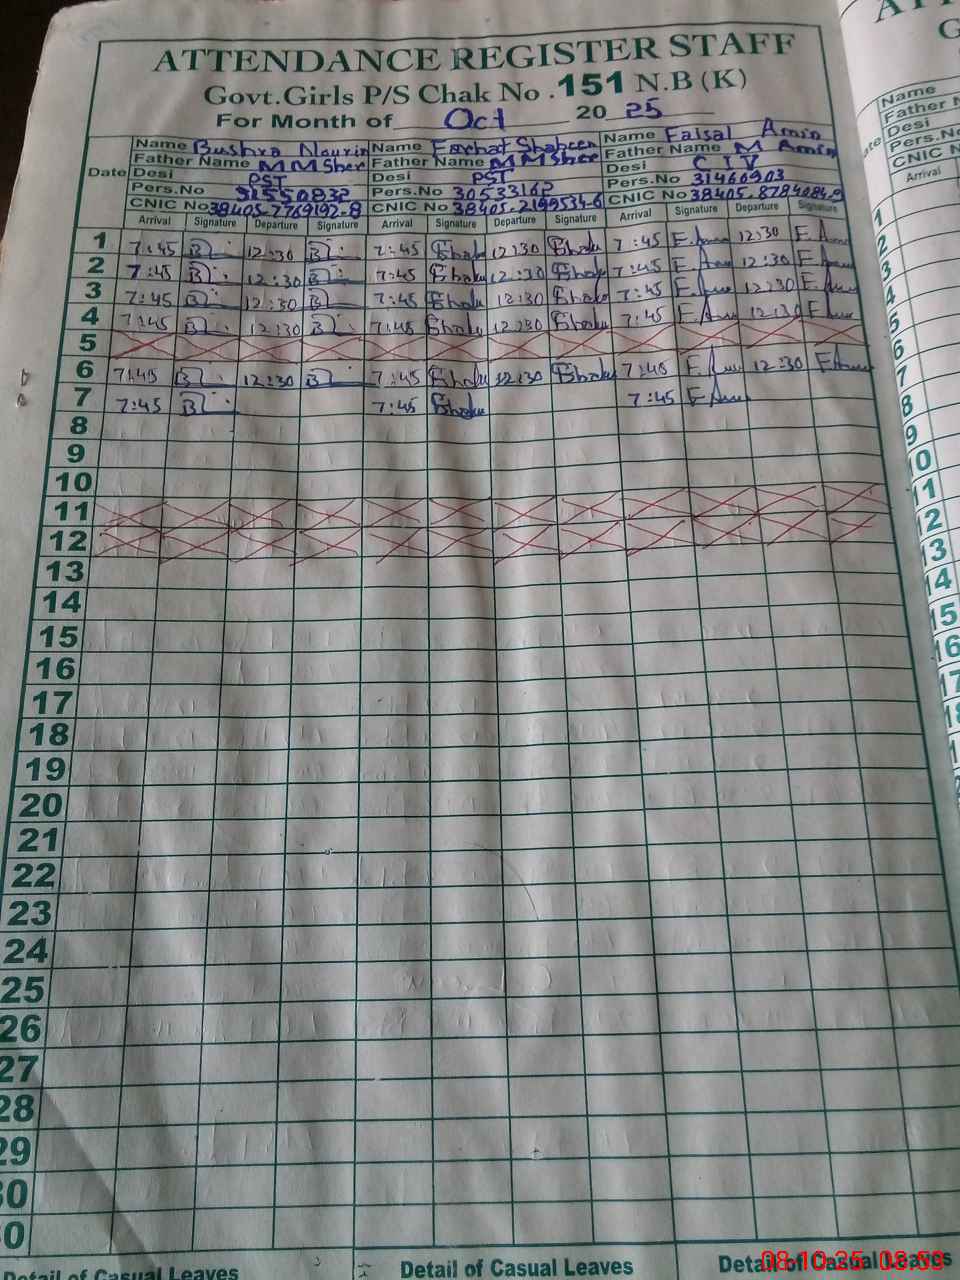 ATTENDANCE REGISTER STAFF
Govt.Girls P/S Chak No .151 N.B (K)
For Month of Oct 20 25
Date
Name Bushra Nourin Name Farhat Shaheen Name Faisal Amin
Father Name M M Sher Father Name M M Sher Father Name M Amin
Desi PST Desi PST Desi C IV
Pers.No 31550832 Pers.No 30533162 Pers.No 31460903
CNIC No 38405-7769192-8 CNIC No 38405-2199534-6 CNIC No 38405-8784084-9
Arrival Signature Departure Signature Arrival Signature Departure Signature Arrival Signature Departure Signature
1 7:45 12:30 7:45 12:30 7:45 12:30
2 7:45 12:30 7:45 12:30 7:45 12:30
3 7:45 12:30 7:45 12:30 7:45 12:30
4 7:45 12:30 7:45 12:30 7:45 12:30
5
6 7:45 12:30 7:45 12:30 7:45 12:30
7 7:45 7:45 7:45
8
9
10
11
12
13
14
15
16
17
18
19
20
21
22
23
24
25
26
27
28
29
30
0
Detail of Casual Leaves Detail of Casual Leaves Detail of Casual Leaves
08-10-25 08:59
Name
Father N
Desi
Pers.No
CNIC N
Arrival
1
2
3
4
5
6
7
8
9
10
11
12
13
14
15
16
17